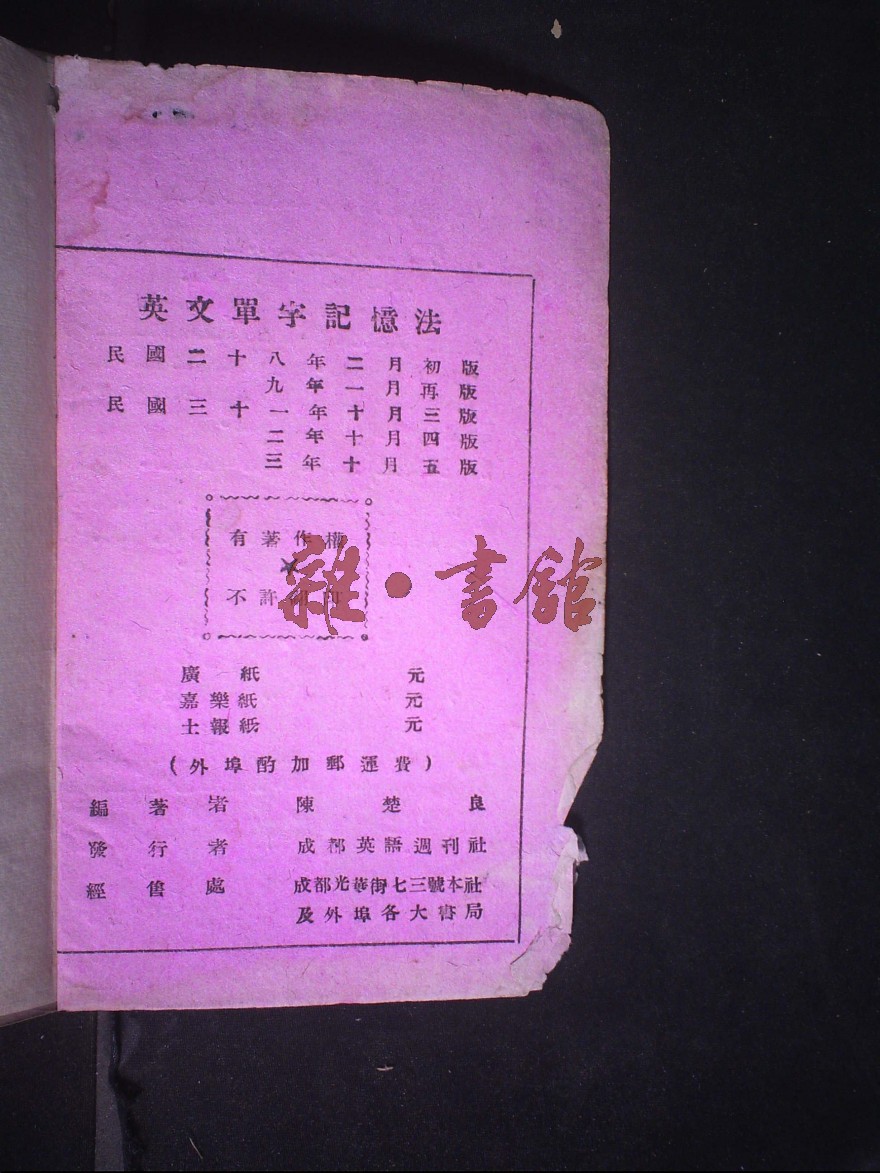 英文單字記憶法
民國二十八年二月初版
九年一月再版
民國三十一年十月三版
二年十月四版
三年十月五版
有著作權
不許翻印
雜·書舘
廣紙 元
嘉樂紙 元
土報紙 元
(外埠酌加郵運費)
編著者 陳楚良
發行者 成都英語週刊社
經售處 成都光華街七三號本社
及外埠各大書局